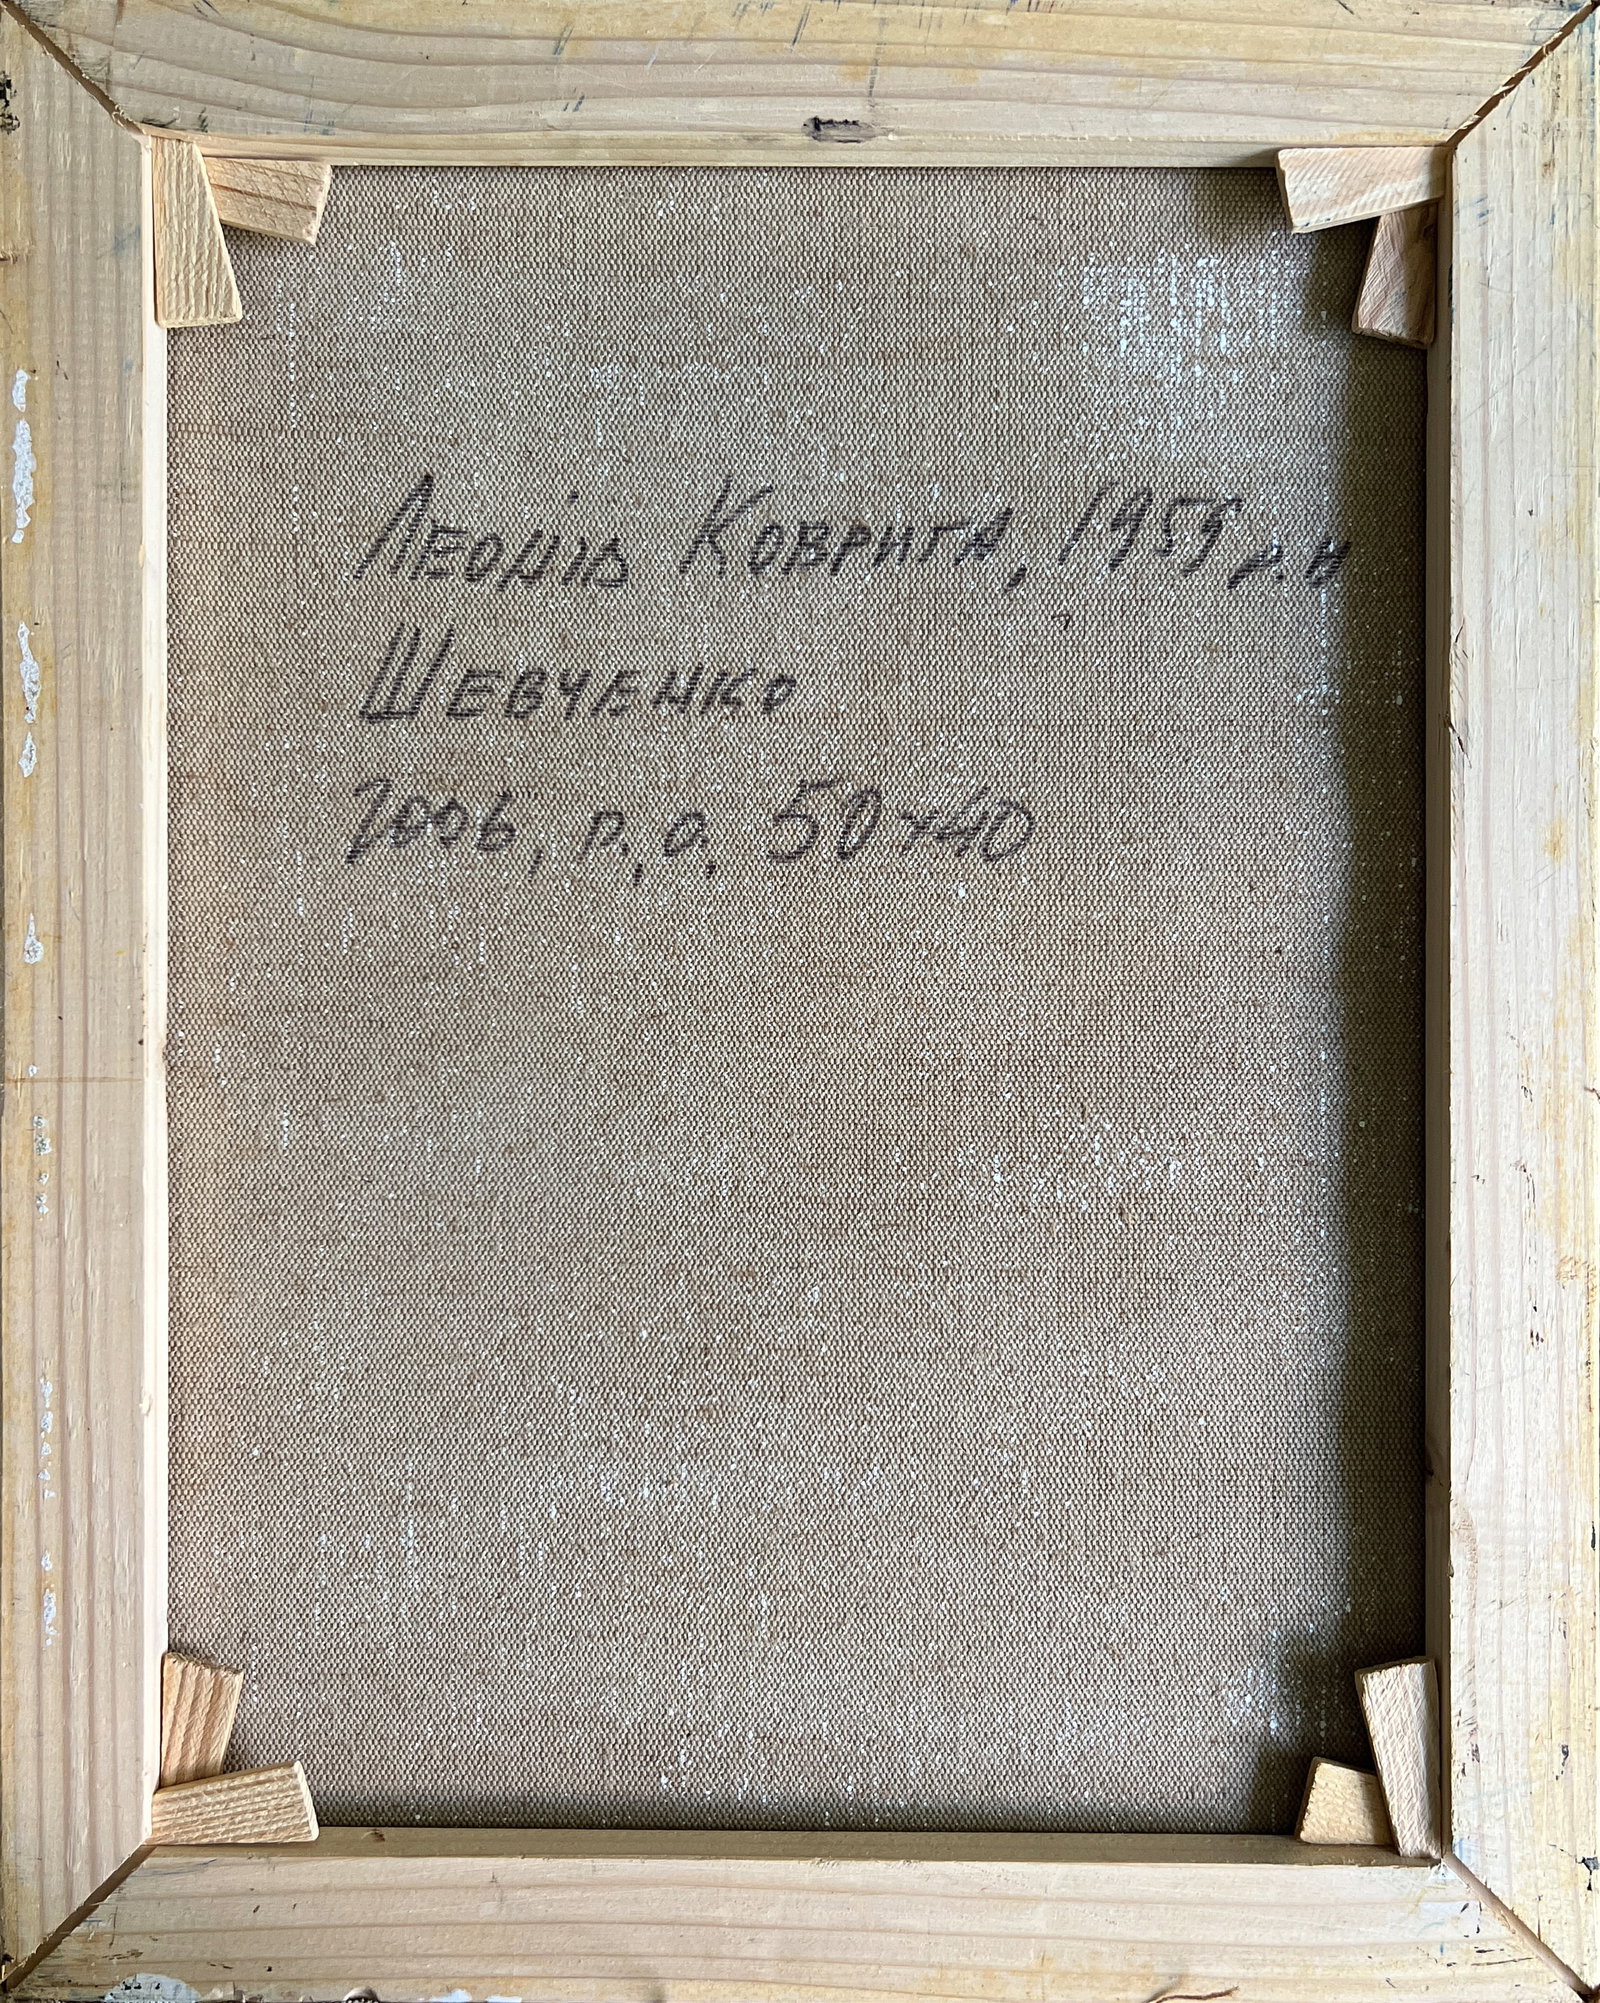 Леонід Коврига, 1959 р.н
Шевченко
2006, п., о, 50х40